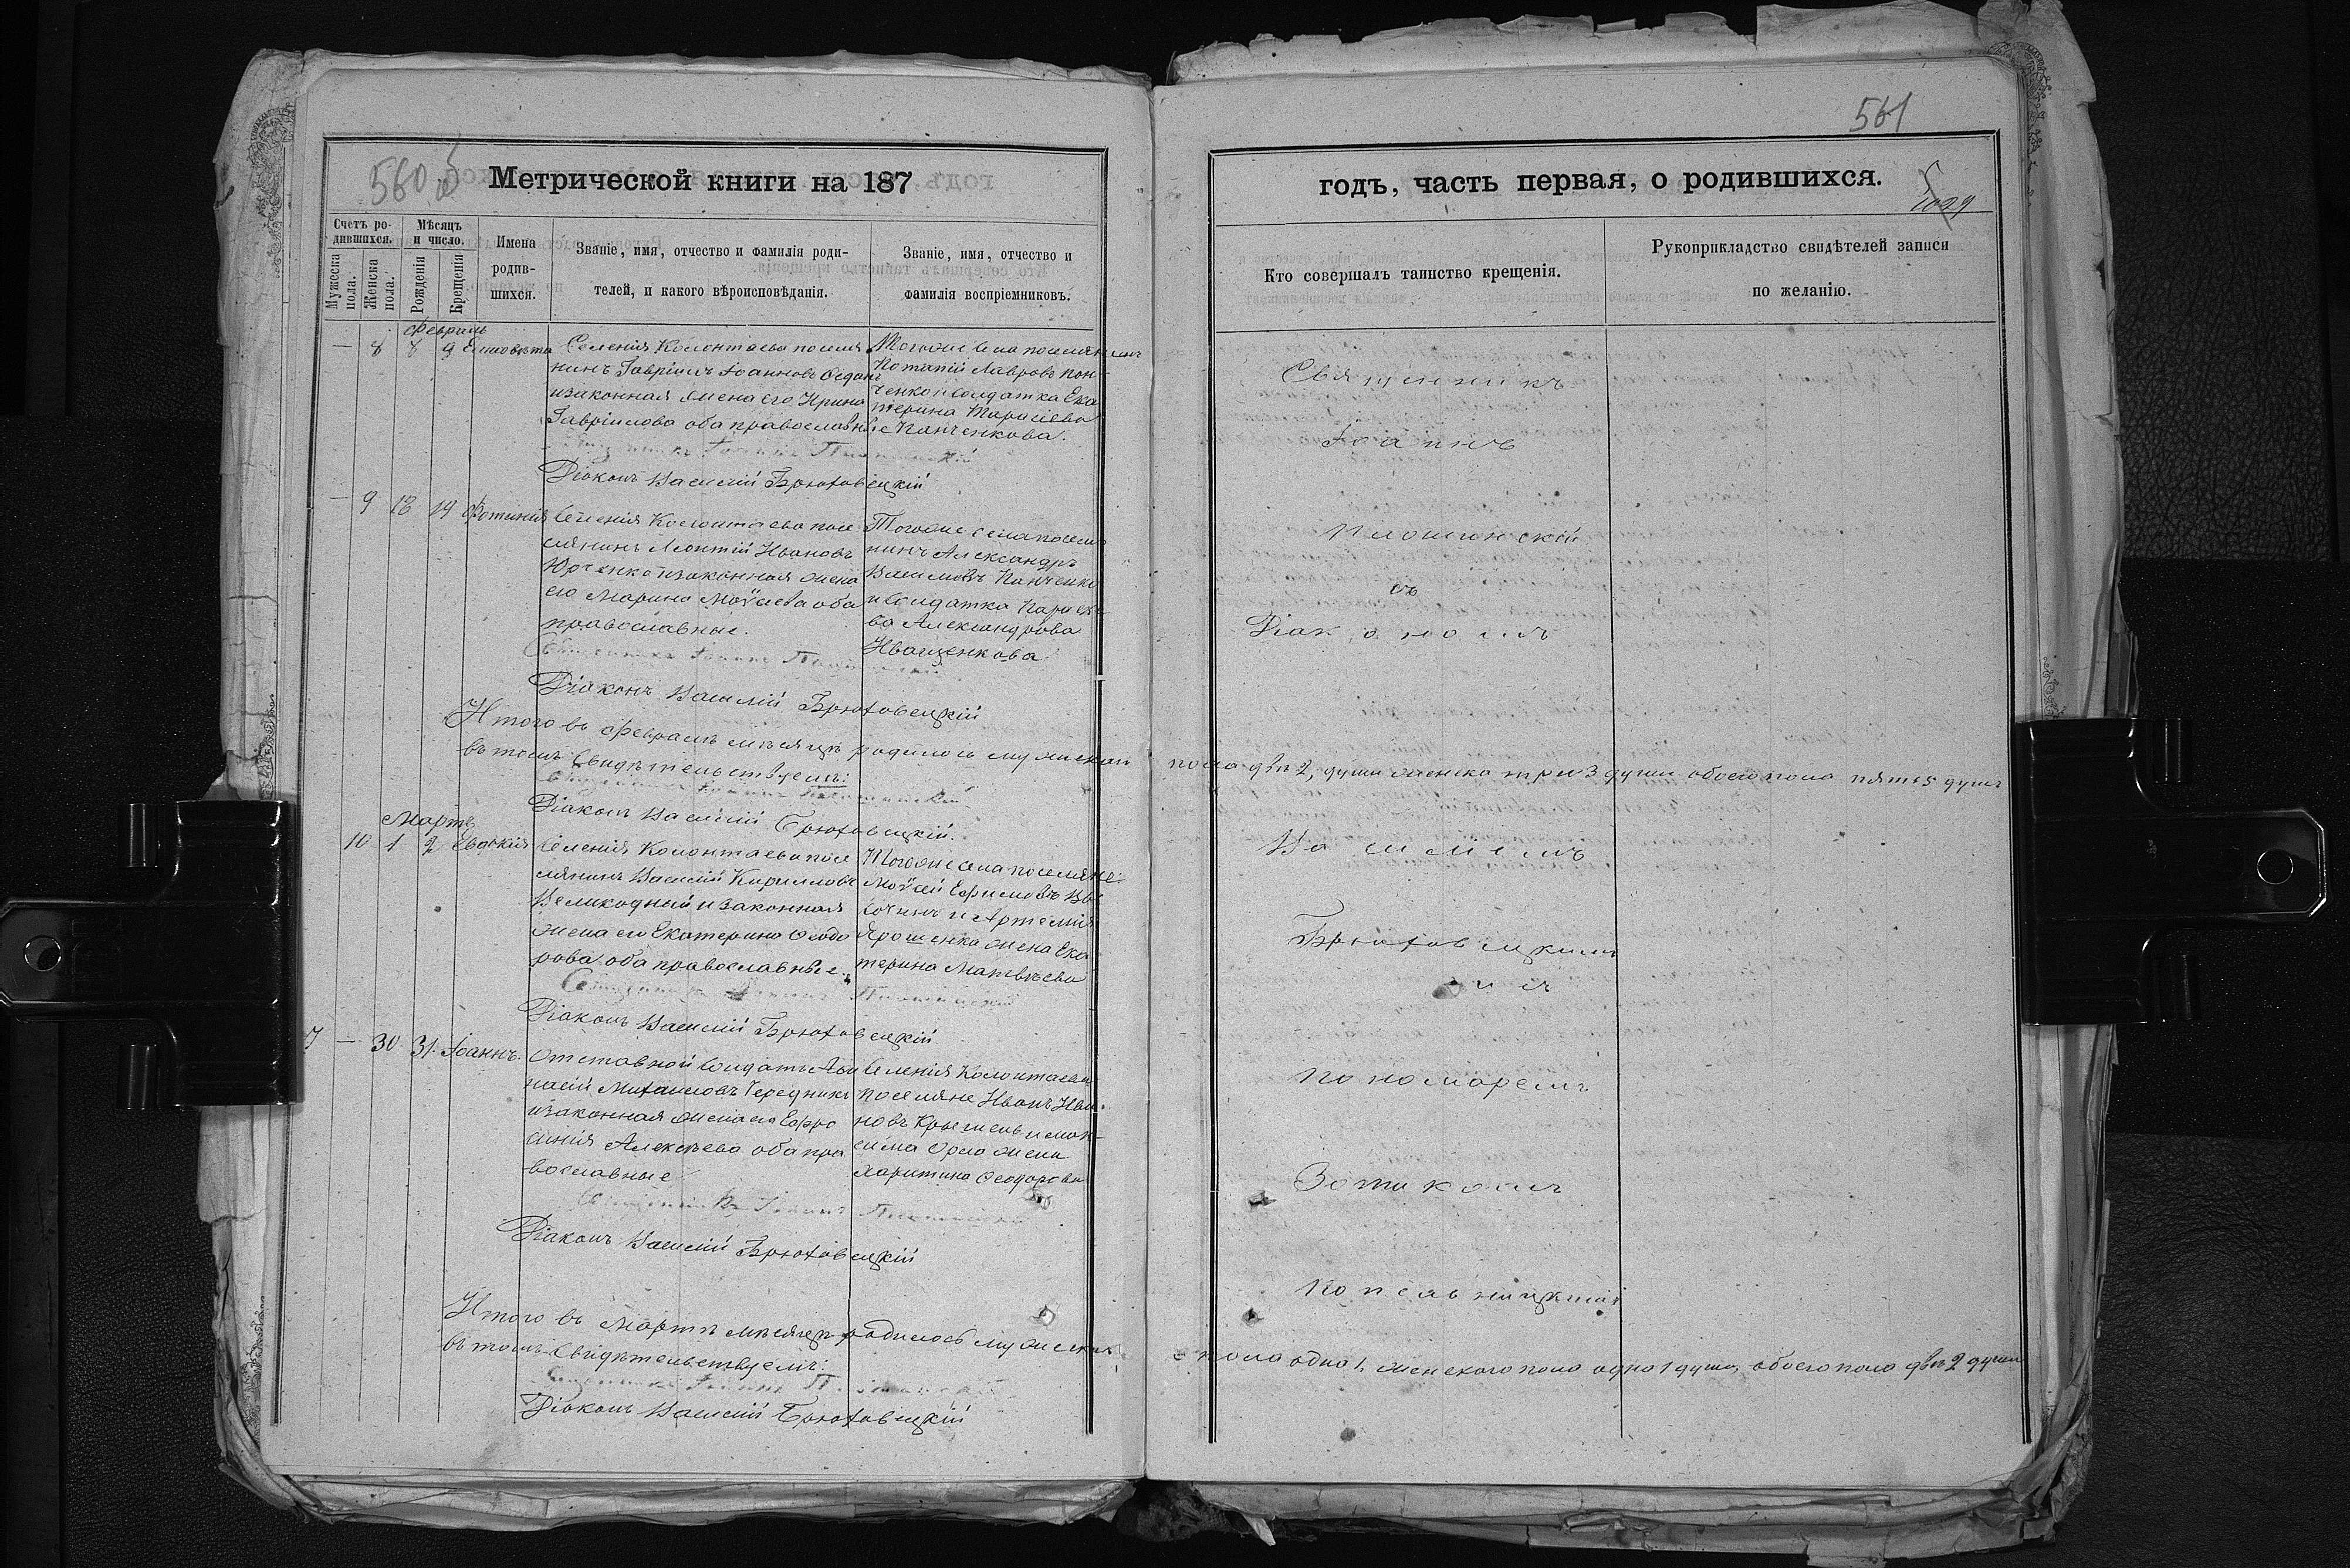 560 об
Метрической книги на 187
Счетъ родившихся.
Мужеска пола.
Женска пола.
Мѣсяцъ и число.
Рожденія
Крещенія
Имена родив-
шихся.
Званіе, имя, отчество и фамилія роди-
телей, и какого вѣроисповѣданія.
Званіе, имя, отчество и
фамилія воспріемниковъ.
Февраль
— 8 8 9 Елисавета
Селенія Колонтаева поселя
нинъ Гавріилъ Іоанновъ
и законная жена его Ирина
Гавріилова оба православные
Тогоже села поселянинъ
Лавровъ Пан-
ченко и солдатка Ека
терина Тарасіева
Панченкова.
Діаконъ Василій Брюховецкій
— 9 18 19 Фотинія
Селенія Колонтаева посе
лянинъ Леонтій Ивановъ
Юрченко и законная жена
его Марина Моѷсеева оба
православные.
Тогоже села поселя
нинъ Александръ
Панченко
и солдатка
ва Александрова
Иващенкова
Священникъ Іоаннъ
Діаконъ Василій Брюховецкій
Итого въ Февралѣ мѣсяцѣ родилось мужеска пола двѣ 2, души женска три 3 души обоего пола пять 5 душъ
въ томъ свидѣтельствуемъ:
Діаконъ Василій Брюховецкій.
Мартъ
10 1 2 Евдокія
Селенія Колонтаева посе
лянинъ Василій Кирилловъ
Великодный и законная
жена его Екатерина Ѳеодо
рова оба православные.
Тогоже села поселяне:
Моѷсей Ефимовъ Вы
сочинъ и Артемія
Ярошенка жена Ека
терина Матвѣева
Священникъ Іоаннъ
Діаконъ Василій Брюховецкій
7 — 30 31 Іоаннъ.
Отставной солдатъ Аѳа
насій Михаиловъ Чередникъ
и законная жена его Ефро
синія Алексѣева оба пра
вославные
Селенія Колонтаева
поселяне Иванъ Ива
новъ и Мак-
сима Орла жена
Харитина Ѳеодорова
Священникъ Іоаннъ
Діаконъ Василій Брюховецкій
Итого въ Мартѣ мѣсяцѣ родилось мужеска пола одна 1, женскаго пола одна 1 душа, обоего пола двѣ 2 души
въ томъ свидѣтельствуемъ:
Діаконъ Василій Брюховецкій
561
годъ, часть первая, о родившихся.
Кто совершалъ таинство крещенія.
Рукоприкладство свидѣтелей записи
по желанію.
Священникъ
Іоаннъ
съ
Діакономъ
Василіемъ
Брюховецкимъ
и съ
пономаремъ
Зотикомъ